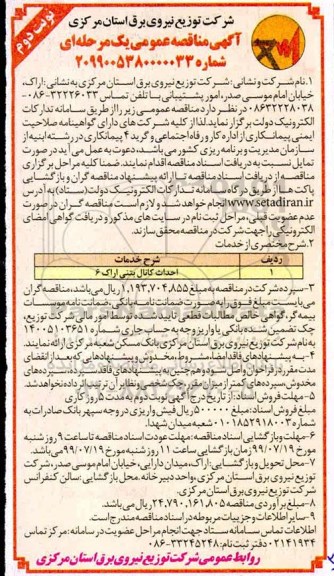 نوبت دوم
شرکت توزیع نیروی برق استان مرکزی
آگهی مناقصه عمومی یک مرحله‌ای
شماره ۲۰۹۹۰۰۵۳۸۰۰۰۰۰۳۳
۱. نام شرکت و نشانی: شرکت توزیع نیروی برق استان مرکزی به نشانی: اراک،
خیابان امام موسی صدر، امور پشتیبانی با تلفن تماس ۳۲۲۲۶۰۳۳-۰۸۶
۰۸۶۳۲۲۲۸۰۳۸ در نظر دارد مناقصه عمومی زیر را از طریق سامانه تدارکات
الکترونیک دولت برگزار نماید. لذا از کلیه شرکت‌های دارای گواهینامه صلاحیت
ایمنی پیمانکاری از اداره کار و رفاه اجتماعی و گرید ۴ پیمانکاری در رشته ابنیه از
سازمان مدیریت و برنامه ریزی کشور می‌باشد، دعوت به عمل می آید در صورت
تمایل نسبت به دریافت اسناد مناقصه اقدام نمایند. ضمنا کلیه مراحل برگزاری
مناقصه از دریافت اسناد مناقصه تا ارائه پیشنهاد مناقصه گران و بازگشایی
پاکت ها از طریق درگاه سامانه تدارکات الکترونیک دولت (ستاد) به آدرس
www.setadiran.ir انجام خواهد شد و لازم است مناقصه گران در صورت
عدم عضویت قبلی، مراحل ثبت نام در سایت های مذکور و دریافت گواهی امضای
الکترونیکی را جهت شرکت در مناقصه محقق سازند.
۲. شرح مختصری از خدمات
ردیف شرح خدمات
۱ احداث کانال بتنی اراک ۶
۳- سپرده شرکت در مناقصه به مبلغ ۱,۱۹۳,۷۰۴,۸۵۵ ریال می باشد، مناقصه گران
می بایست مبلغ فوق را به صورت ضمانت نامه بانکی، ضمانت نامه موسسات
بیمه گر، گواهی خالص مطالبات قطعی تایید شده توسط امور مالی شرکت توزیع،
چک تضمین شده بانکی یا واریز وجه به حساب جاری شماره ۱۴۰۰۵۱۰۳۶۵۱
به نام شرکت توزیع نیروی برق استان مرکزی بانک مسکن شعبه مرکزی ارائه نمایند.
۴- به پیشنهادهای فاقد امضا، مشروط، مخدوش و پیشنهادهایی که بعد از انقضای
مدت مقرر در فراخوان واصل شود و همچنین به پیشنهادهای فاقد سپرده، سپرده های
مخدوش، سپرده های کمتر از میزان مقرر، چک شخصی و نظایر آن ترتیب اثر داده نخواهد شد.
۵- مهلت فروش اسناد: از تاریخ درج آگهی نوبت دوم به مدت ۵ روز کاری
مبلغ فروش اسناد: مبلغ ۵۰۰۰۰۰ ریال فیش واریزی در وجه سپهر بانک صادرات به
شماره ۰۱۰۱۸۵۲۹۱۸۰۰۳ شعبه میدان شهدا.
۶- مهلت و بازگشایی اسناد مناقصه: مهلت عودت اسناد مناقصه تا ساعت ۹ روز شنبه
مورخ ۹۹/۰۷/۱۹ زمان بازگشایی ساعت ۱۱ روز شنبه مورخ ۹۹/۰۷/۱۹ می باشد.
۷- محل تحویل و بازگشایی: اراک، میدان دارایی، خیابان امام موسی صدر، شرکت
توزیع نیروی برق استان مرکزی، واحد دبیرخانه. محل بازگشایی: سالن کنفرانس
شرکت توزیع نیروی برق استان مرکزی.
۸- مبلغ برآوردی مناقصه ۲۴,۷۹۰,۱۶۱,۸۰۵ ریال می باشد.
۹- سایر اطلاعات و جزییات مربوطه در اسناد مناقصه مندرج است.
اطلاعات تماس سامانه ستاد جهت انجام مراحل عضویت در سامانه: مرکز تماس
۰۲۱۴۱۹۳۴ دفتر ثبت نام: ۳۳۲۴۵۲۴۸-۰۸۶
روابط عمومی شرکت توزیع نیروی برق استان مرکزی